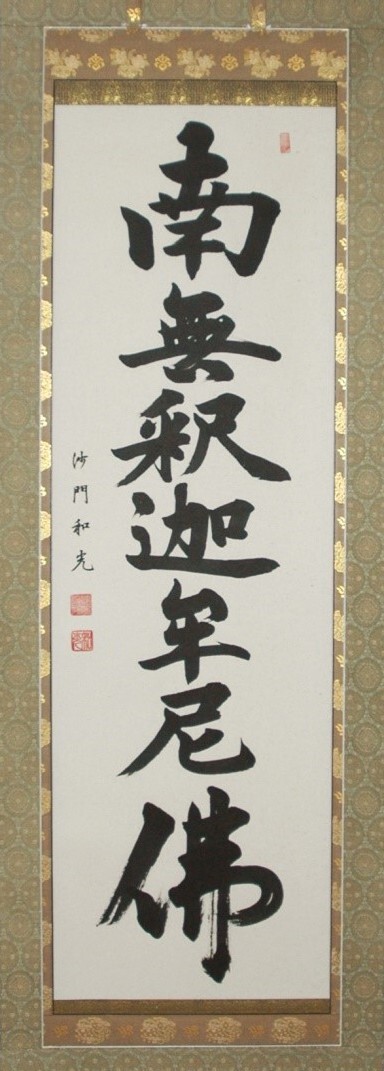 南無釈迦牟尼佛
沙門和光